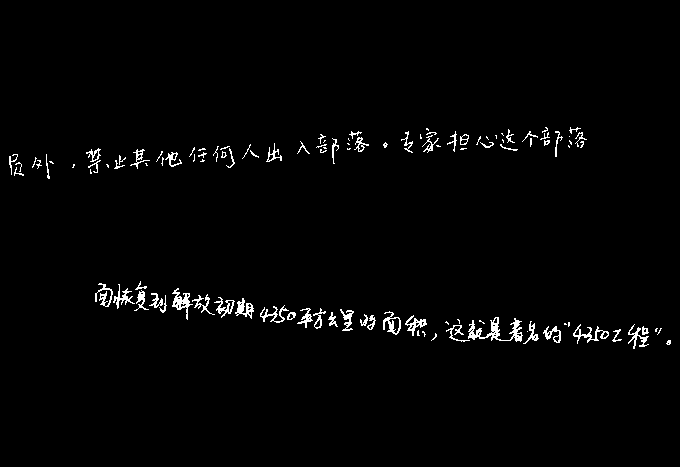 员外，禁止其他任何人出入部落。专家担心这个部落
面恢复到解放初期4350平方公里的面积，这就是著名的“4350工程”。